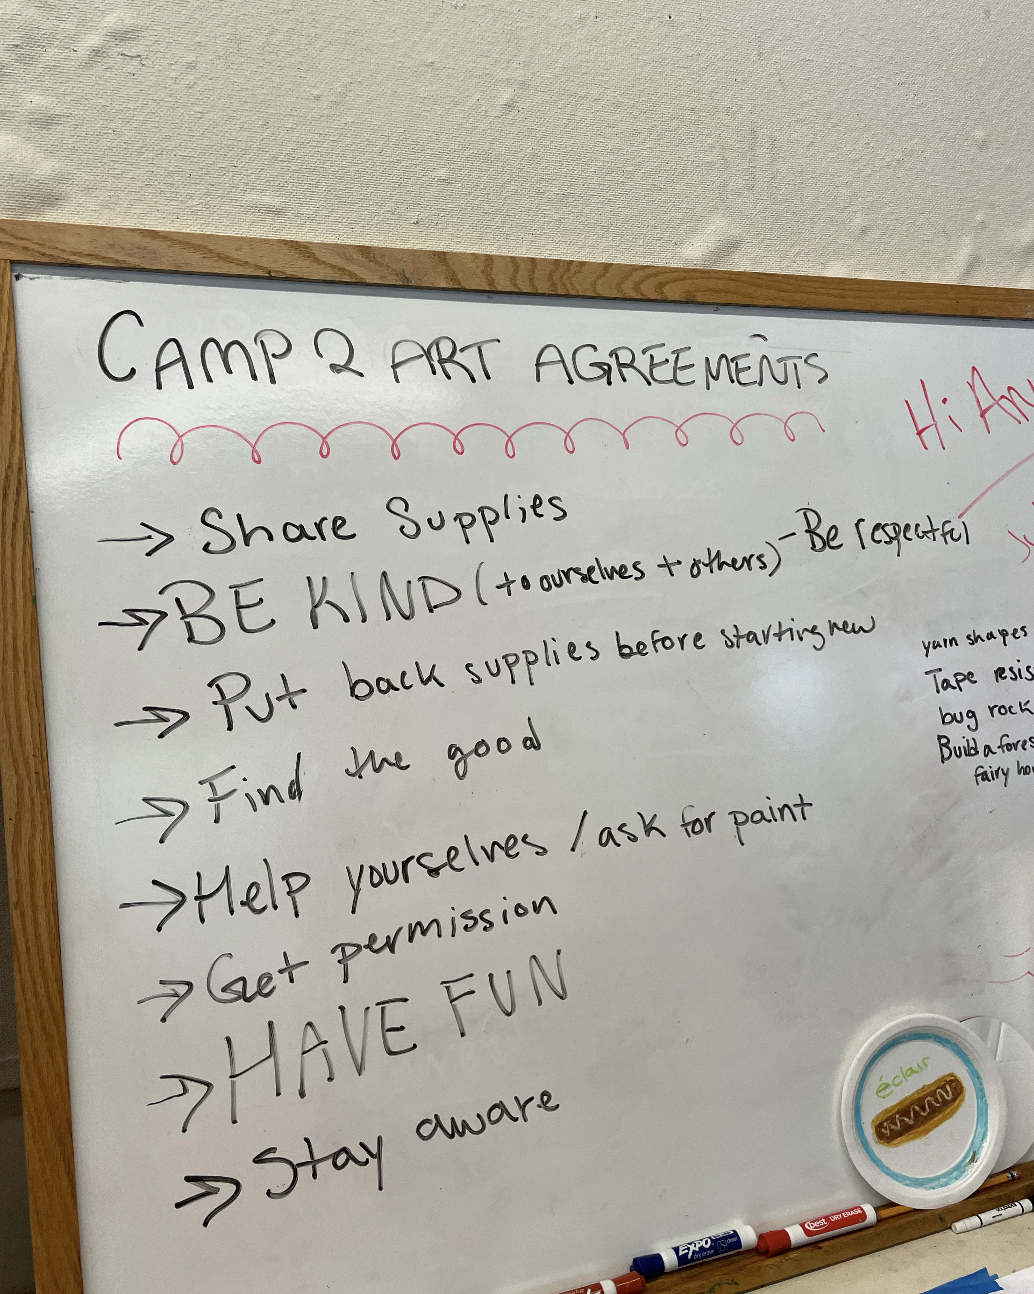 CAMP 2 ART AGREEMENTS
Hi
→ Share Supplies
→ BE KIND (to ourselves + others) - Be respectful
→ Put back supplies before starting new
→ Find the good
→ Help yourselves / ask for paint
→ Get permission
→ HAVE FUN
→ Stay aware
yarn shapes
Tape
bug
Build a
fairy
éclair
EXPO
dry erase
best DRY ERASE